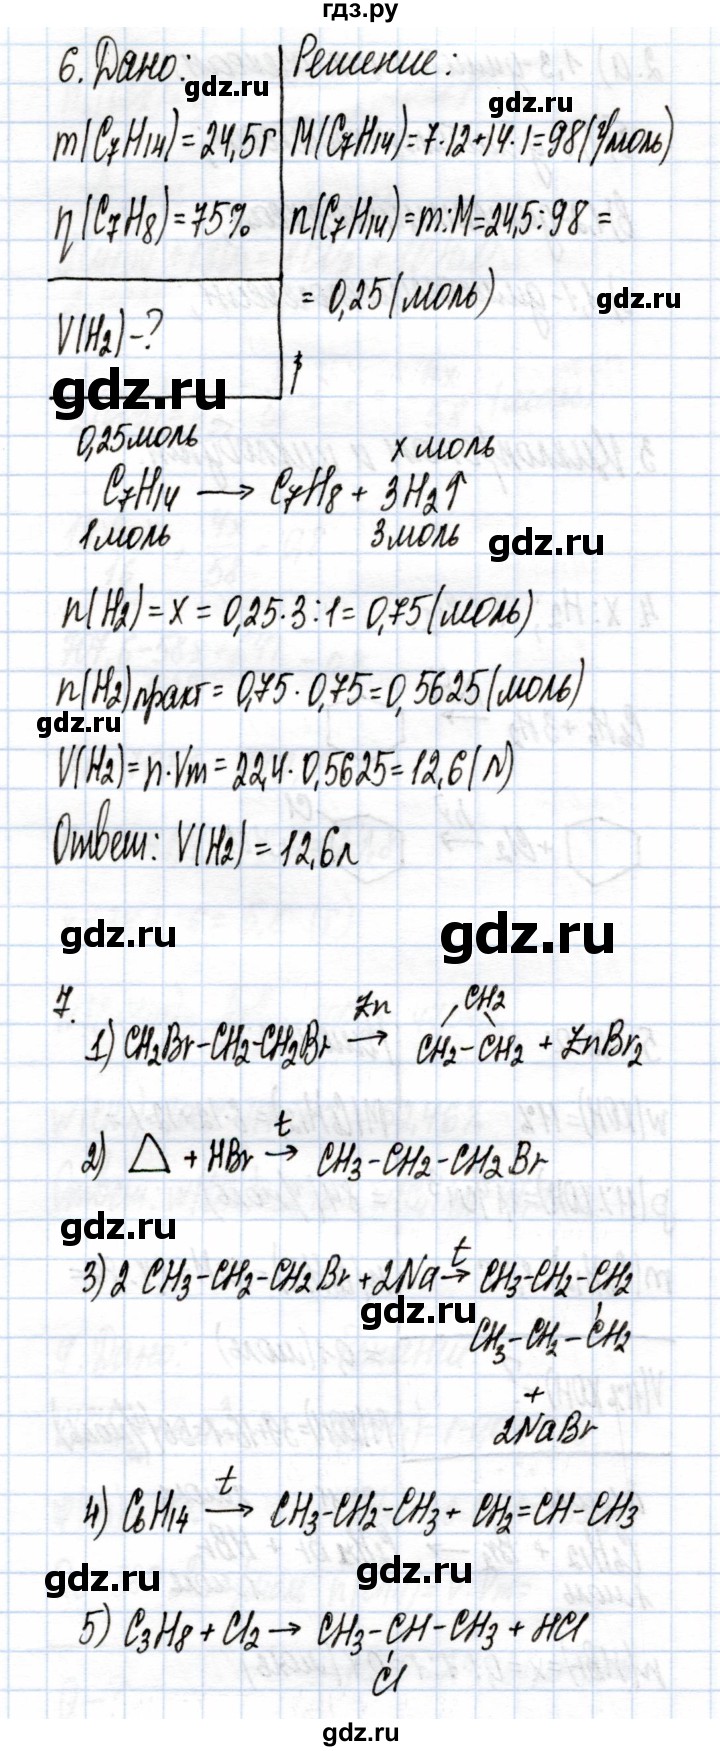 гдз.ру
6. Дано:
Решение:
gdz.ru
gdz.ru
m(C₇H₁₄)=24,5г
M(C₇H₁₄)=7·12+14·1=98(г/моль)
η(C₇H₈)=75%
n(C₇H₁₄)=m:M=24,5:98=
=0,25(моль)
gdz.ru
V(H₂)-?
gdz.ru
0,25моль
x моль
C₇H₁₄ → C₇H₈ + 3H₂↑
1моль
3моль
gdz.ru
n(H₂)=x=0,25·3:1=0,75(моль)
n(H₂)практ=0,75·0,75=0,5625(моль)
gdz.ru
V(H₂)=n·Vm=22,4·0,5625=12,6(л)
Ответ: V(H₂)=12,6л
gdz.ru
gdz.ru
7.
Zn
CH₂
1) CH₂Br-CH₂-CH₂Br → CH₂-CH₂ + ZnBr₂
t
2) △ + HBr → CH₃-CH₂-CH₂Br
gdz.ru
t
3) 2 CH₃-CH₂-CH₂Br+2Na→ CH₃-CH₂-CH₂
gdz.ru
CH₃-CH₂-CH₂
+
2NaBr
t
4) C₆H₁₄ → CH₃-CH₂-CH₃+ CH₂=CH-CH₃
gdz.ru
gdz.ru
5) C₃H₈+Cl₂→ CH₃-CH-CH₃+HCl
Cl
gdz.ru